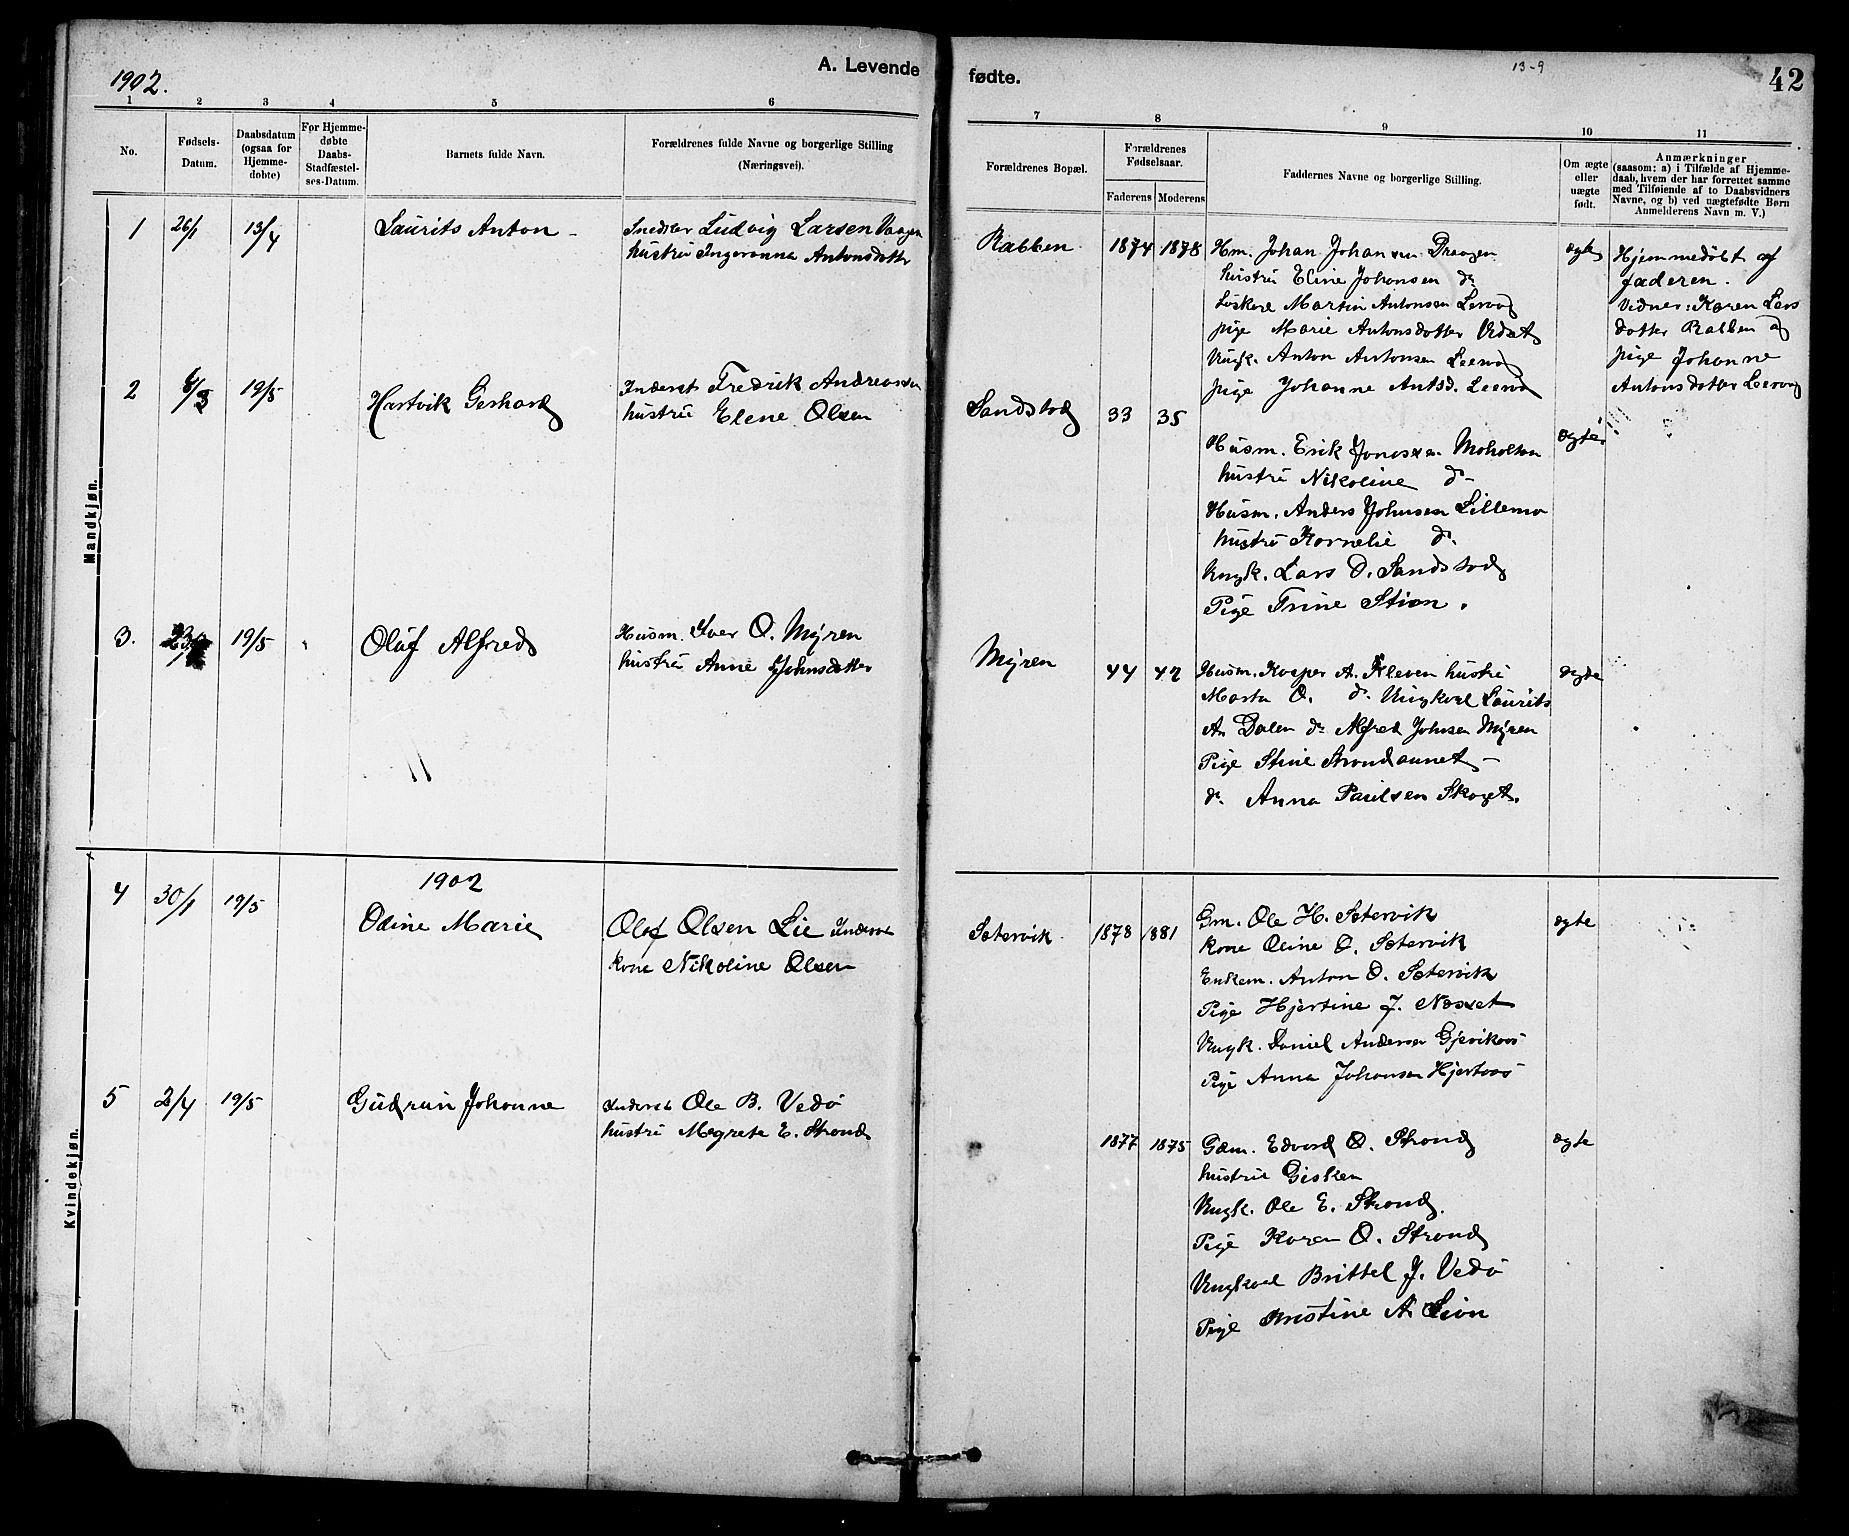 1902.
A. Levende fødte.
13-9
42
1 2 3 4 5 6 7 8 9 10 11
No.
Fødsels-
Datum.
Daabsdatum
(ogsaa for
Hjemme-
døbte)
For Hjemme-
døbte
Daabs-
Stadfæstel-
ses-Datum.
Barnets fulde Navn.
Forældrenes fulde Navne og borgerlige Stilling
(Næringsvei).
Forældrenes Bopæl.
Forældrenes
Fødselsaar.
Faderens Moderens
Faddernes Navne og borgerlige Stilling.
Om ægte
eller
uægte
født.
Anmærkninger
(saasom: a) i Tilfælde af Hjemme-
daab, hvem der har forrettet samme
med Tilføiende af to Daabsvidners
Navne, og b) ved uægtefødte Børn
Anmelderens Navn m. V.)
Mandkjøn.
1 26/1 13/4 Laurits Anton
Snedker Ludvig Larsen Vaagen
hustru Ingeranna Antonsdotter
Rabben 1874 1878
Hm. Johan Johansen Draagen
hustru Eline Johansen do
Løskarl Martin Antonsen Lervog
pige Marie Antonsdotter Vidset
Ungk. Anton Antonsen Leervog
pige Johanne Antsd. Leervog
ægte
Hjemmedøbt af
faderen.
Vidner: Karen Lars
dotter Rabben og
pige Johanne
Antonsdotter Leervog
2 19/5 Hartvik Gerhard
Inderst Fredrik Andreassen
hustru Elene Olsen
Sandstad 33 35
Husm. Erik Jonassen Moholten
hustru Nikoline do
Husm. Anders Johnsen Lillemo
hustru Kornelie do.
Ungk. Lars O. Sandstad
Pige Trine Stion.
ægte
3. 19/5 Olaf Alfred
Husm. Iver O. Myren
hustru Anne Johnsdotter
Myren 44 42
Husm. Kasper A. Kleven hustru
Marta O. do. Ungkarl Laurits
A. Dalen do Alfred Johnsen Myren
Pige Stine Strandaunet
do. Anna Paulsen Skaget.
ægte
Kvindekjøn.
1902
4 30/1 19/5 Odine Marie
Olaf Olsen Lie Inderst
kone Nikoline Olsen
Sætervik 1878 1881
Gm. Ole H. Sætervik
kone Oline O. Sætervik
Enkem. Anton O. Sætervik
Pige Hjertine J. Næsset
Ungk. Daniel Andersen Gjævikaas
Pige Anna Johansen Hjertaas
ægte
5 2/4 19/5 Gudrun Johanne
Inderst Ole B. Vedø
hustru Magrete E. Strand
1877 1875
Gdm. Edvard O. Strand
hustru Gisken
Ungk. Ole E. Strand.
Pige Karen O. Strand
Ungkarl Brittel J. Vedø
Pige Kristine A. Sion
ægte